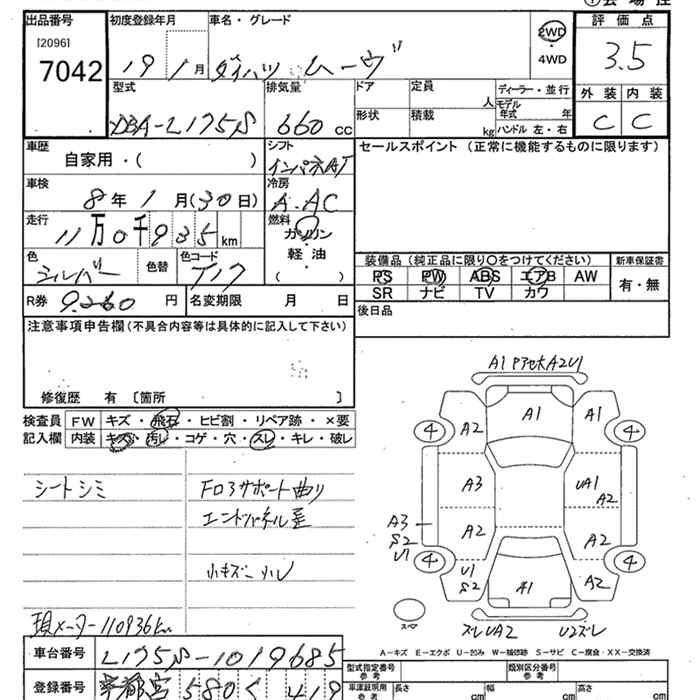 出品番号
[2096]
7042
初度登録年月
19 1 月
車名・グレード
ダイハツ ムーヴ
2WD
・
4WD
評価点
3.5
外装 内装
C C
型式
DBA-L175S
排気量
660 cc
ドア
定員
人
ディーラー・並行
形状
積載
kg
モデル
年式 年
ハンドル 左・右
車歴
自家用・( )
シフト
インパネAT
セールスポイント (正常に機能するものに限ります)
車検
8 年 1 月(30日)
冷房
A.AC
走行
11 万 0 千 935 km
燃料
ガソリン
・
軽油
( )
色
シルバー
色替
色コード
R券 9.260 円
名変期限 月 日
装備品 (純正品に限り○をつけてください)
PS PW ABS エアB AW
SR ナビ TV カワ
新車保証書
有・無
後日品
注意事項申告欄(不具合内容等は具体的に記入して下さい)
修復歴 有 〔箇所 〕
検査員
記入欄
FW キズ・飛石・ヒビ割・リペア跡・×要
内装 キズ・汚レ・コゲ・穴・スレ・キレ・破レ
シートシミ
FロアサポートЫ曲り
エンドパネル歪
小キズ小ル
現メーター110936km
A1 Pアセ大A2U1
A1
A2
A1
4
4
A3
UA1
A2
A3
S2
U1
A2
A2
4
4
U1
S2
A1
A2
スペア
ズレUA2
U2ズレ
A－キズ E－エクボ U－凹み W－補修跡 S－サビ C－腐食・XX－交換済
車台番号
L175S-1019685
登録番号
宇都宮 580 く 419
型式指定番号
参考
類別区分番号
参考
車庫証明用
参考
長さ
cm
幅
cm
高さ
cm